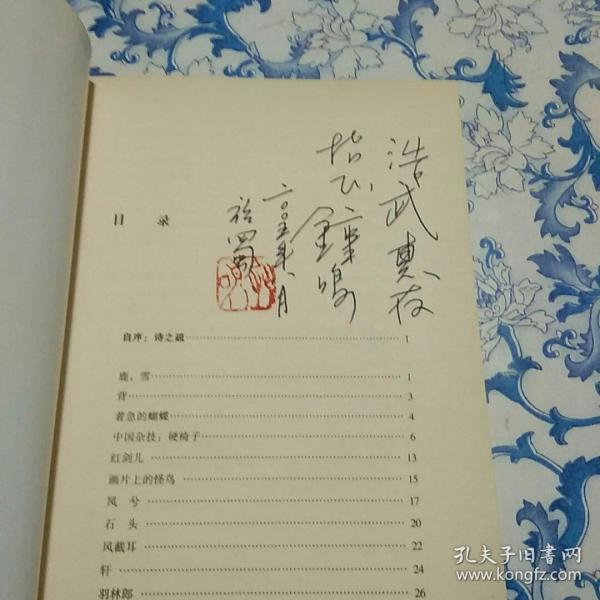 浩武惠存
指正 鐘鳴
二〇〇五年八月
于蜀
目 录
自序：诗之疏 1
鹿，雪 1
背 3
着急的蝴蝶 4
中国杂技：硬椅子 6
红剑儿 13
画片上的怪鸟 15
凤 兮 17
石 头 20
风截耳 22
轩 24
羽林郎 26
孔夫子旧书网
www.kongfz.com